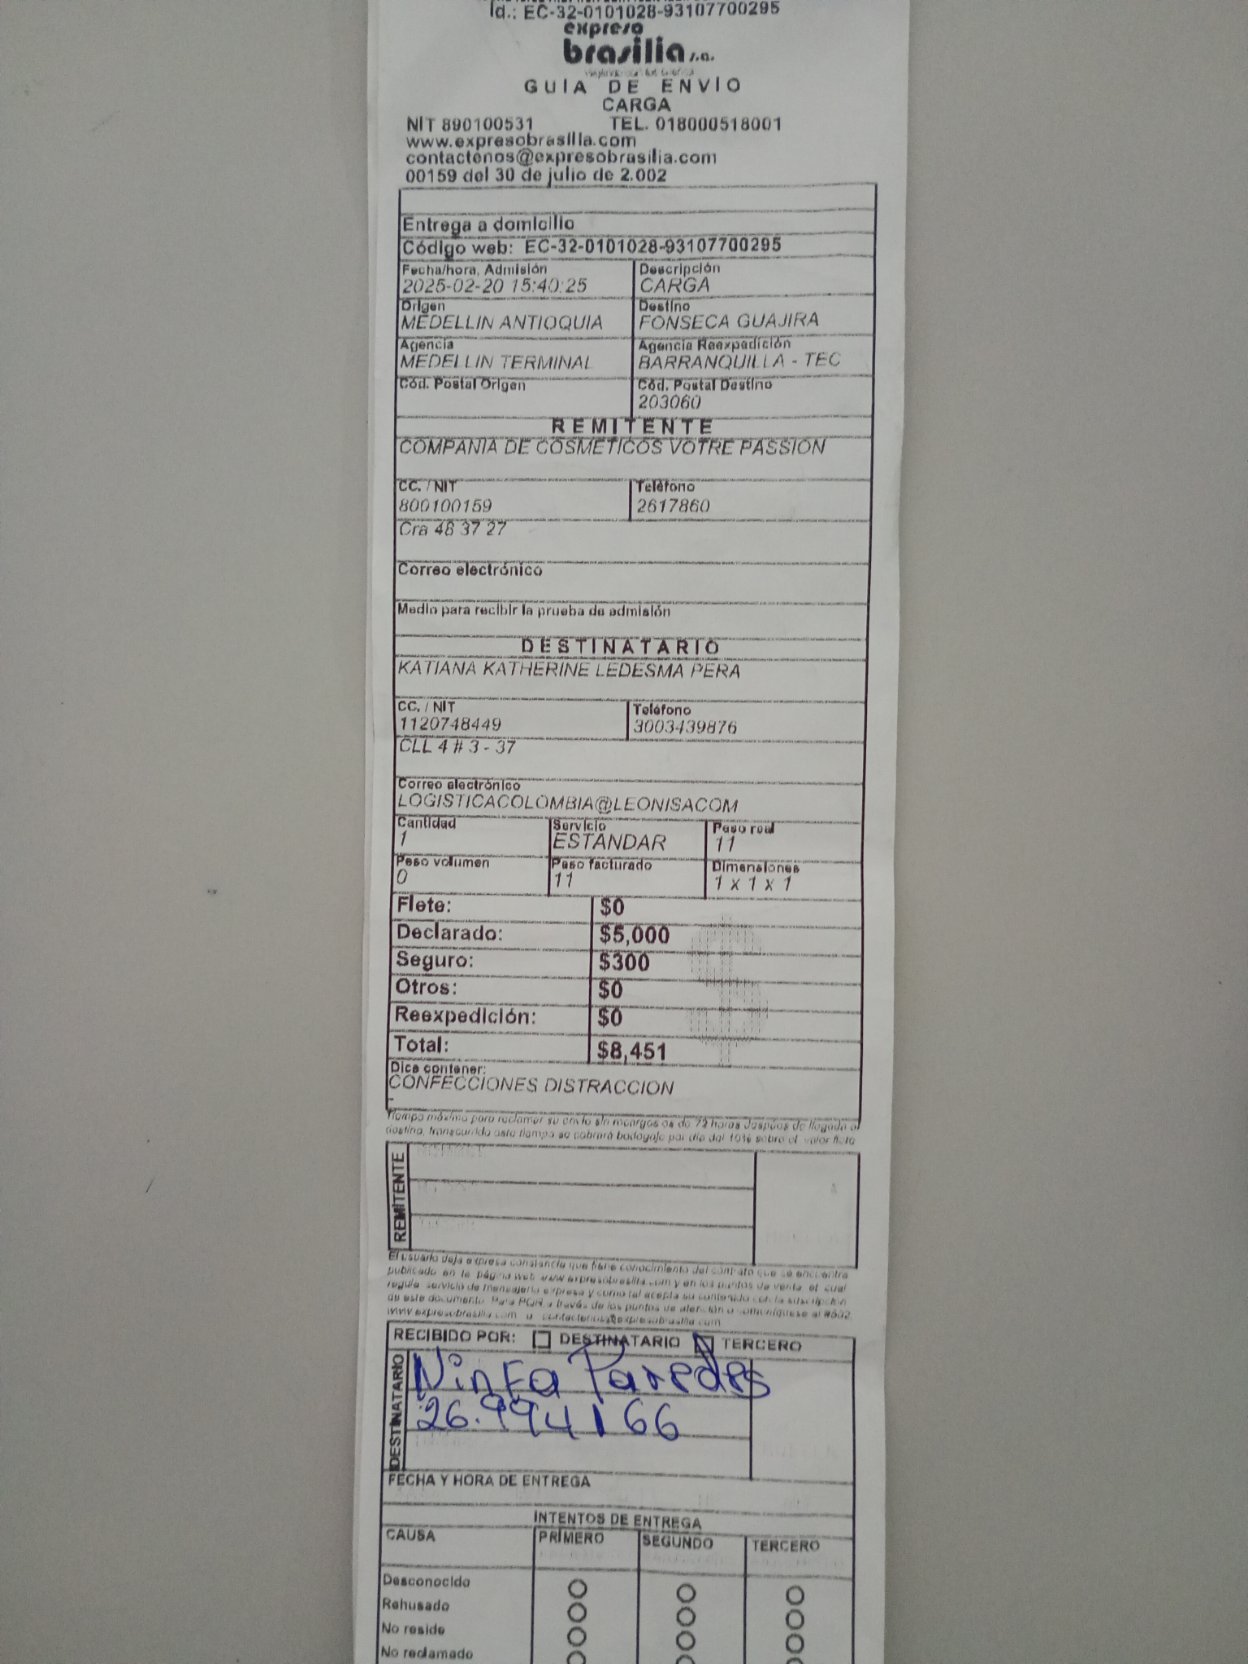 Id.: EC-32-0101028-93107700295
expreso
brasilia s.a.
GUIA DE ENVIO
CARGA
NIT 890100531 TEL. 018000518001
www.expresobrasilia.com
contactenos@expresobrasilia.com
00159 del 30 de julio de 2.002
Entrega a domicilio
Código web: EC-32-0101028-93107700295
Fecha/hora, Admisión Descripción
2025-02-20 15:40:25 CARGA
Origen Destino
MEDELLIN ANTIOQUIA FONSECA GUAJIRA
Agencia Agencia Reexpedición
MEDELLIN TERMINAL BARRANQUILLA - TEC
Cód. Postal Origen Cód. Postal Destino
203060
REMITENTE
COMPANIA DE COSMETICOS VOTRE PASSION
CC. / NIT Teléfono
800100159 2617860
Cra 48 37 27
Correo electrónico
Medio para recibir la prueba de admisión
DESTINATARIO
KATIANA KATHERINE LEDESMA PERA
CC. / NIT Teléfono
1120748449 3003439876
CLL 4 # 3 - 37
Correo electrónico
LOGISTICACOLOMBIA@LEONISACOM
Cantidad Servicio Peso real
1 ESTANDAR 11
Peso volumen Peso facturado Dimensiones
0 11 1 x 1 x 1
Flete: $0
Declarado: $5,000
Seguro: $300
Otros: $0
Reexpedición: $0
Total: $8,451
Dice contener:
CONFECCIONES DISTRACCION
-
Tiempo máximo para reclamar su envío sin recargos es de 72 horas después de llegada al
destino, transcurrido este tiempo se cobrará bodegaje por día del 10% sobre el valor flete
REMITENTE
El usuario deja expresa constancia que tiene conocimiento del contrato que se encuentra
publicado en la página web www.expresobrasilia.com y en los puntos de venta, el cual
regula servicio de mensajería expresa y como tal acepta su contenido con la suscripción
de este documento. Para PQR a través de los puntos de atención o comuníquese al #502
www.expresobrasilia.com o contactenos@expresobrasilia.com
RECIBIDO POR: DESTINATARIO TERCERO
DESTINATARIO
Ninfa Paredes
26.994166
FECHA Y HORA DE ENTREGA
INTENTOS DE ENTREGA
CAUSA PRIMERO SEGUNDO TERCERO
Desconocido
Rehusado
No reside
No reclamado